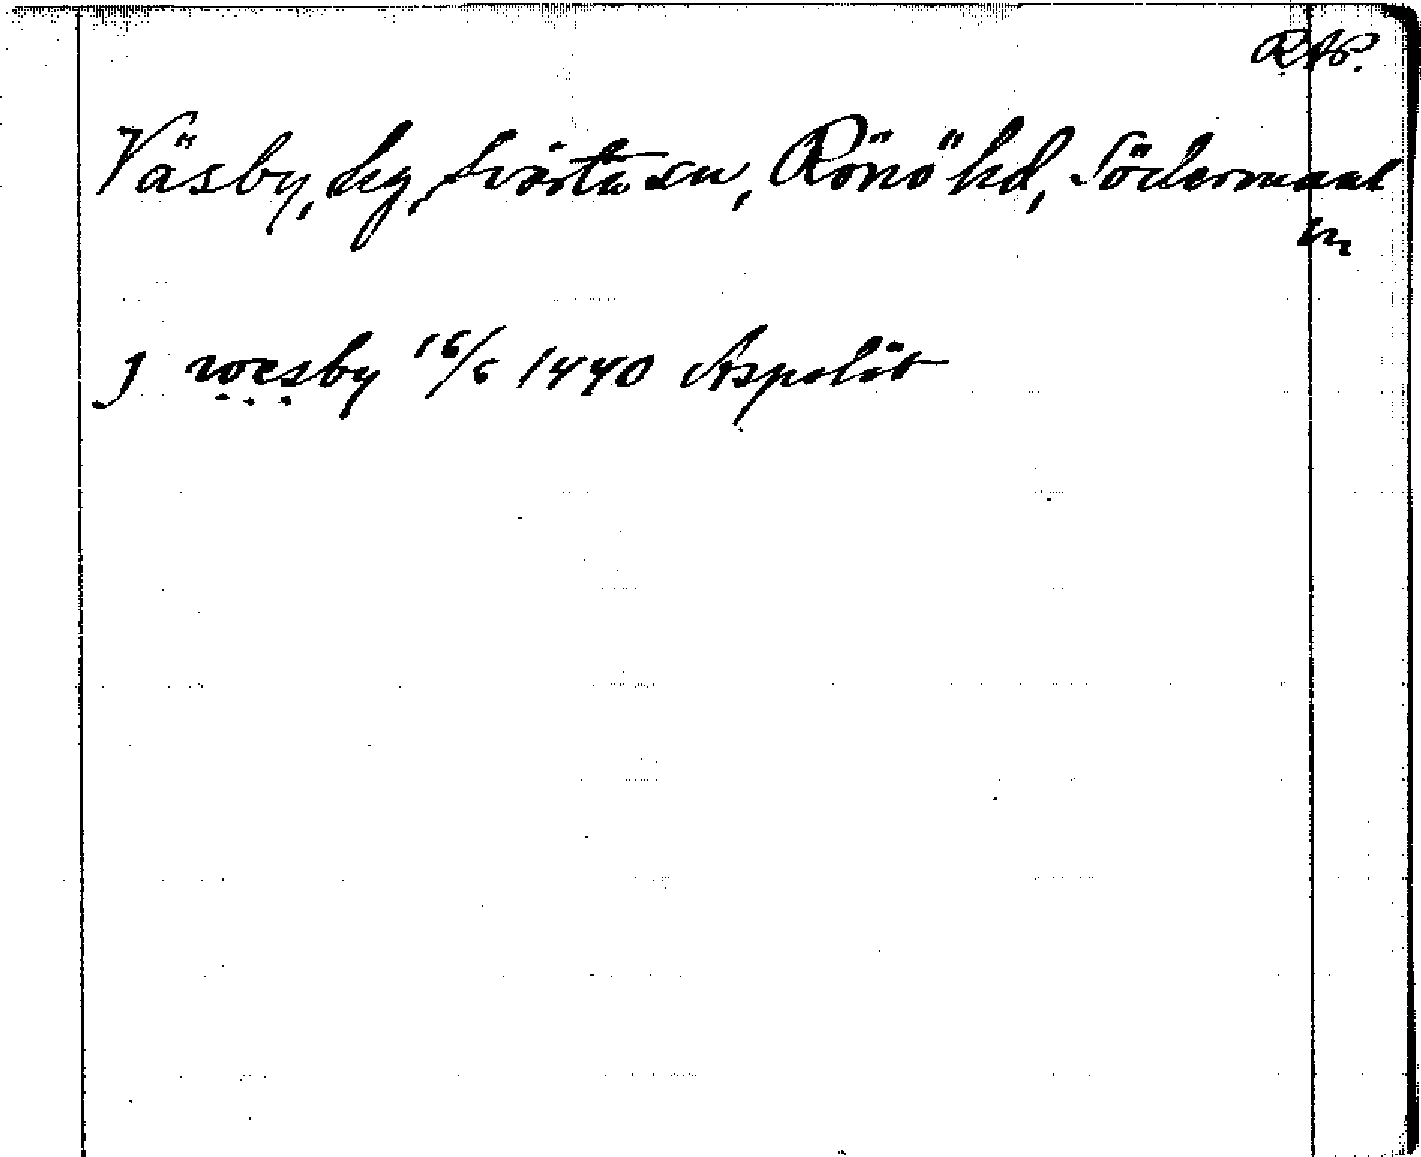 RAP.
Väsby, hg, Svärta sn, Rönö hd, Södermanl
ln
J wesby 16/6 1440 Aspolöt